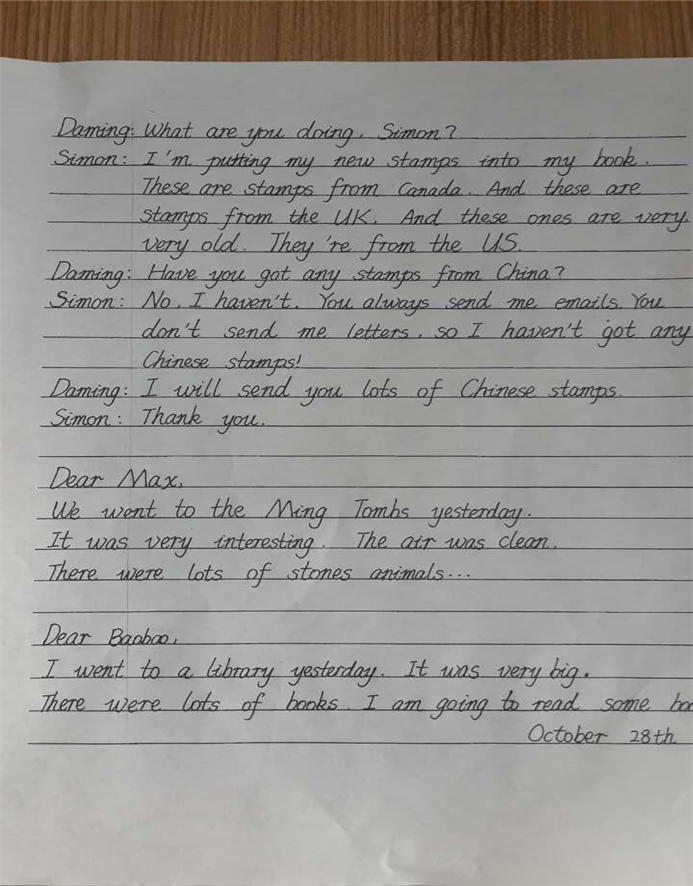 Daming: What are you doing, Simon?
Simon: I'm putting my new stamps into my book.
These are stamps from Canada. And these are
stamps from the UK. And these ones are very,
very old. They're from the US.
Daming: Have you got any stamps from China?
Simon: No, I haven't. You always send me emails. You
don't send me letters, so I haven't got any
Chinese stamps!
Daming: I will send you lots of Chinese stamps.
Simon: Thank you.
Dear Max,
We went to the Ming Tombs yesterday.
It was very interesting. The air was clean.
There were lots of stones animals...
Dear Baobao,
I went to a library yesterday. It was very big.
There were lots of books. I am going to read some
October 28th